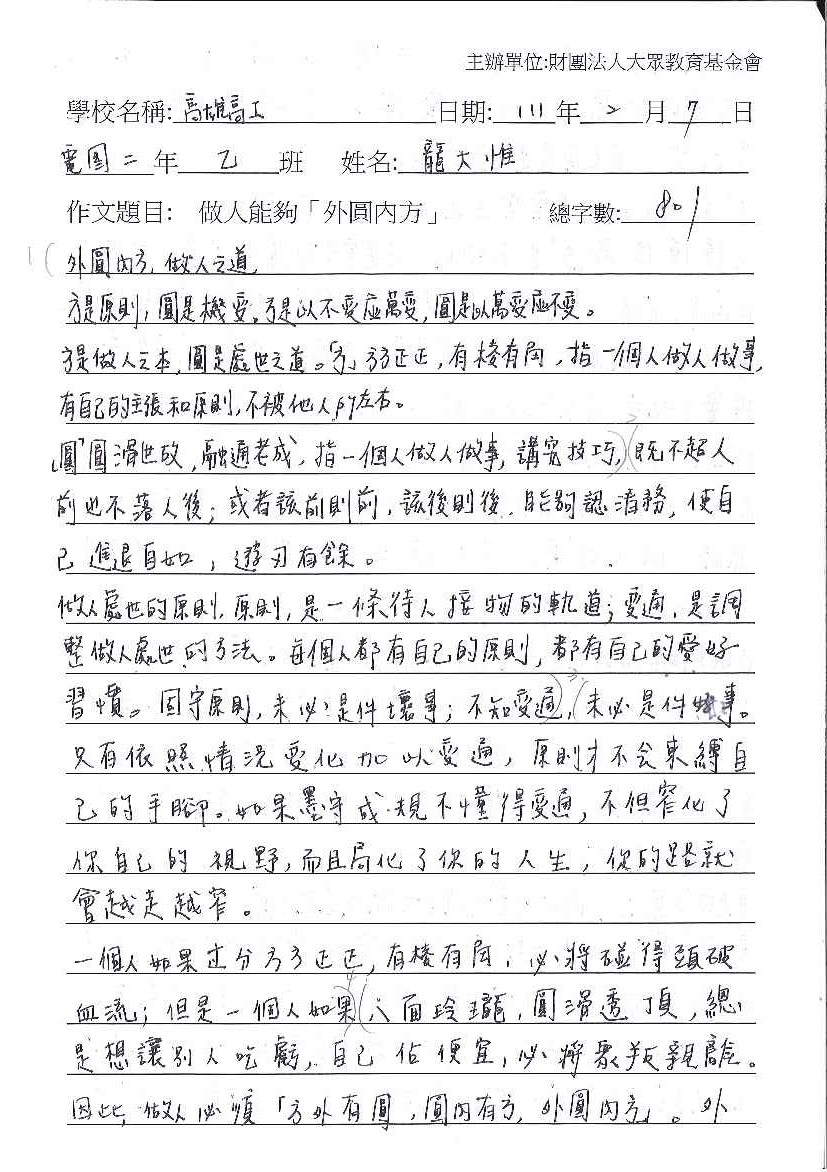 主辦單位:財團法人大眾教育基金會
學校名稱: 高雄高工 日期: 111 年 2 月 7 日
電圖二 年 乙 班 姓名: 龍大惟
作文題目: 做人能夠「外圓內方」 總字數: 801
外圓內方,做人之道,
方是原則,圓是機變。方是以不變應萬變,圓是以萬變應不變。
方是做人之本,圓是處世之道。「方」方方正正,有棱有角,指一個人做人做事,
有自己的主張和原則,不被他人所左右。
「圓」圓滑世故,融通老成,指一個人做人做事,講究技巧,既不超人
前也不落人後;或者該前則前,該後則後,能夠認清務,使自
己進退自如,遊刃有餘。
做人處世的原則,原則,是一條待人接物的軌道;變通,是調
整做人處世的方法。每個人都有自己的原則,都有自己的愛好
習慣。固守原則,未必是件壞事;不知變通,未必是件事。
只有依照情況變化加以變通,原則才不會束縛自
己的手腳。如果墨守成規不懂得變通,不但窄化了
你自己的視野,而且局化了你的人生,你的路就
會越走越窄。
一個人如果過分方方正正,有棱有角,必將碰得頭破
血流;但是一個人如果八面玲瓏,圓滑透頂,總
是想讓別人吃虧,自己佔便宜,必將眾叛親離。
因此,做人必須「方外有圓,圓內有方,外圓內方」。外